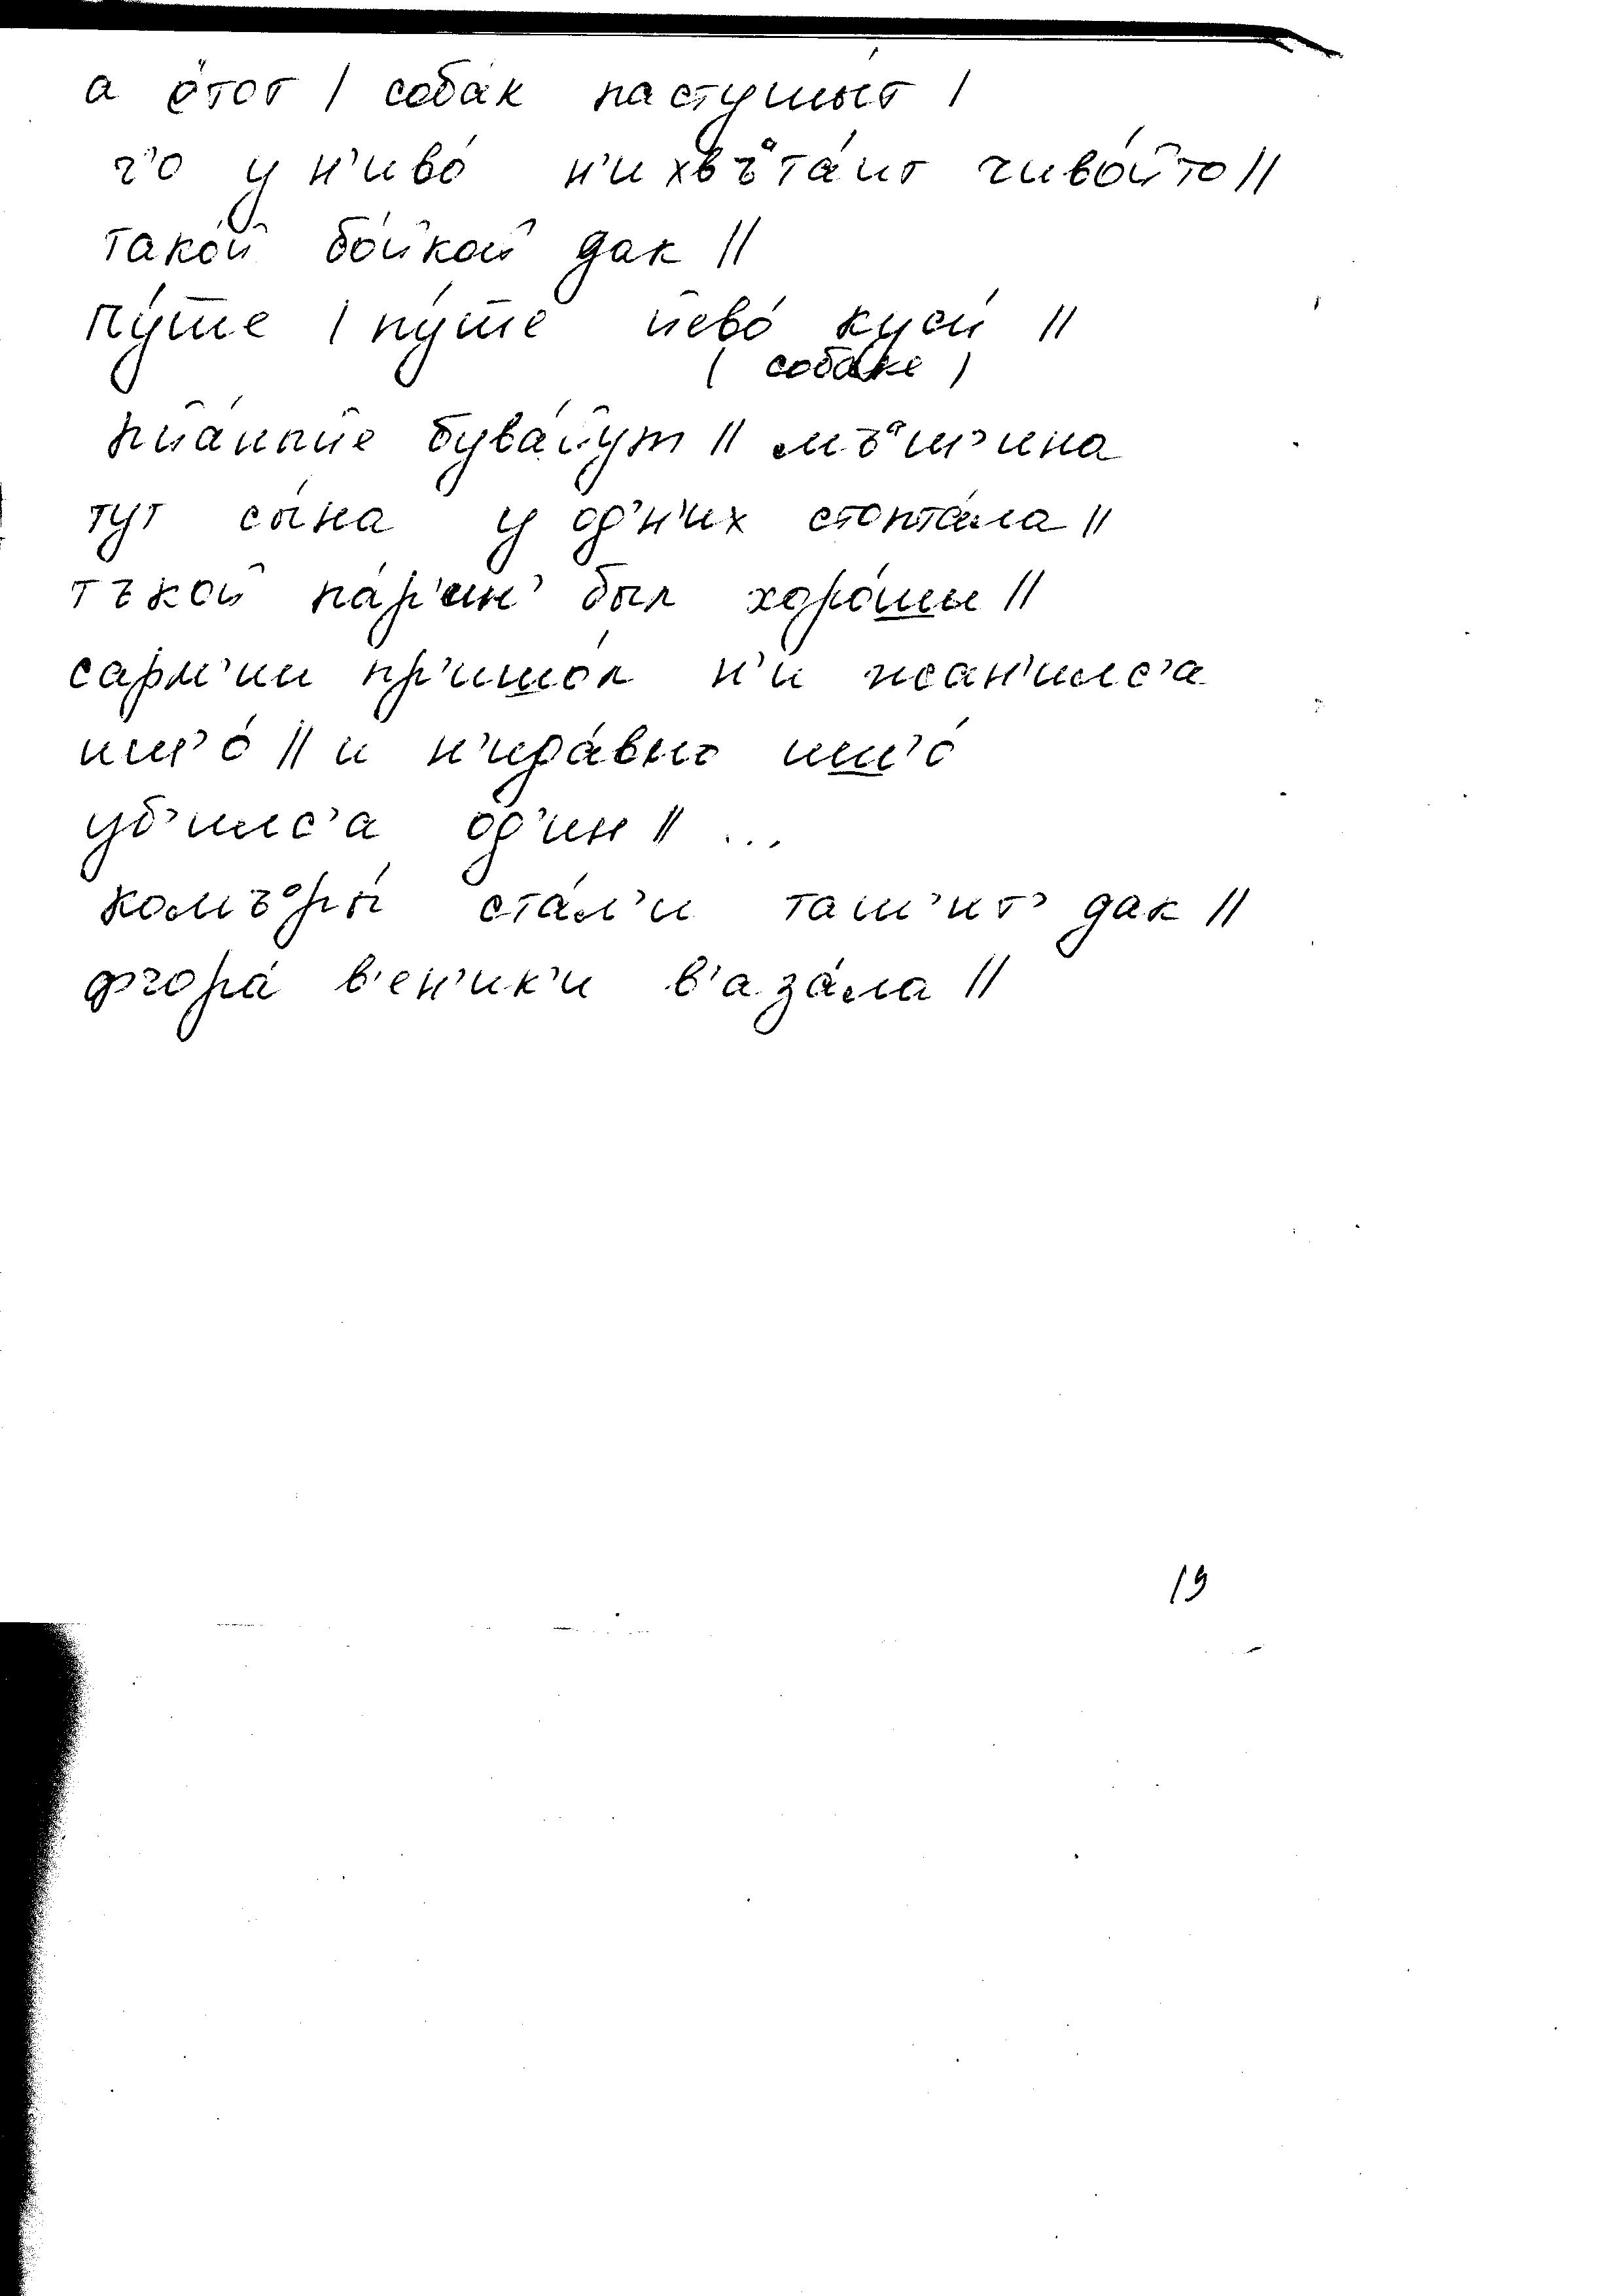 а е́тот / соба́к пастушы́т /
ч'о у н'иво́ н'ихвъ°та́ит чиво́йто //
тако́й бо́йкой дак //
пу́тше / пу́тше йево́ куси́ //
(соба́ке)
пйа́ныйе бува́йут // мъ°ш'ина
тут сы́на у од'н'их стопта́ла //
тъкой па́р'ин' был хоро́шы //
сарм'ии пр'ишо́л н'и жан'илс'а
ишш'о́ // и н'ида́вно ишш'о́
уб'илс'а од'ин // ...
комъ°ры́ ста́л'и таш'ит' дак //
фчора́ в'ен'ик'и в'аза́ла //
19